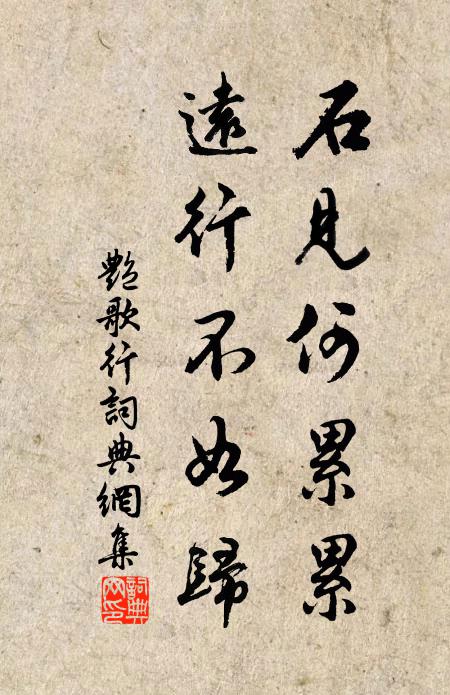 石見何累累
遠行不如歸
艷歌行詞典網集
詞典
网印